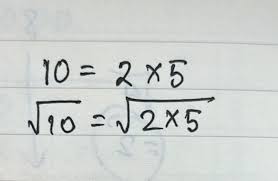 10 = 2 × 5
√10 = √2 × 5